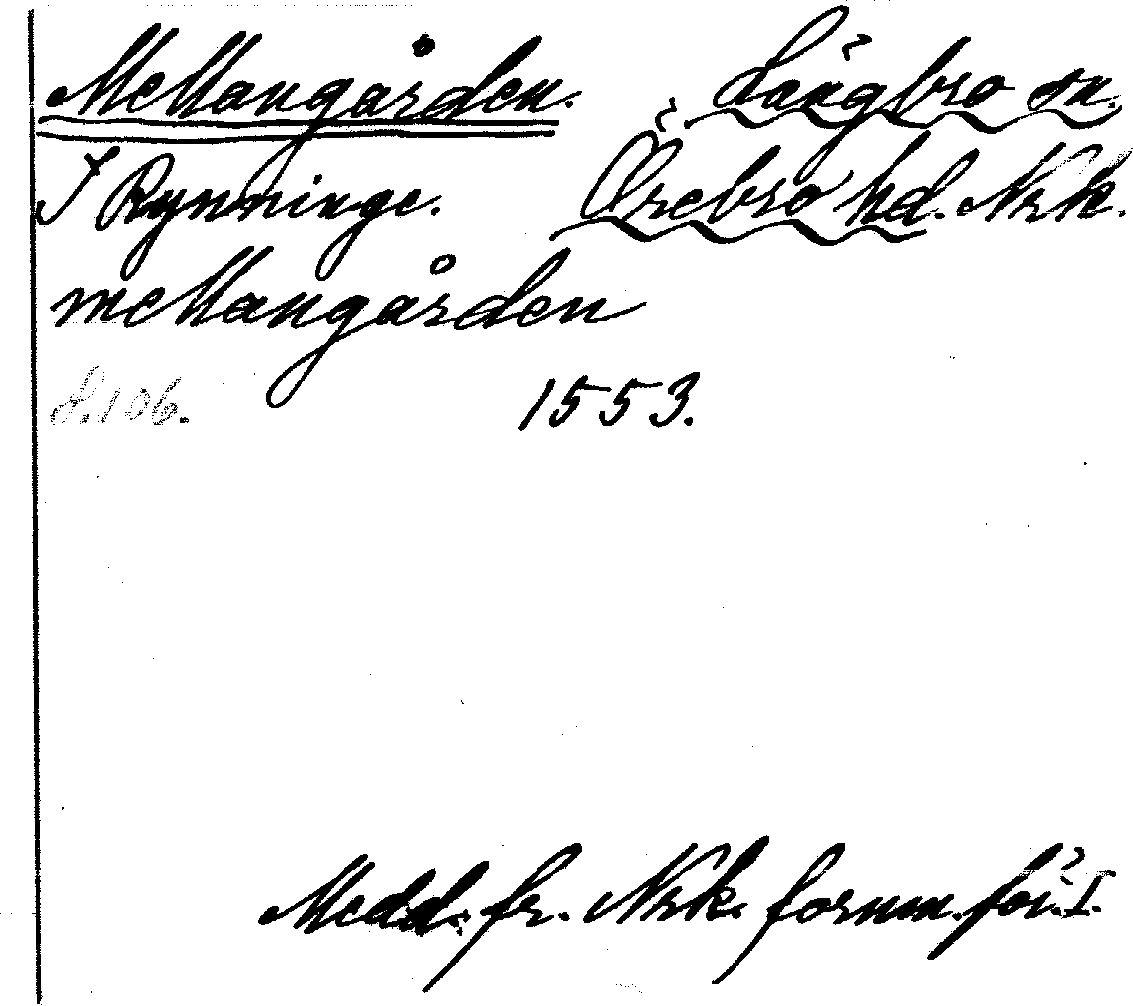 Mellangården. Längbro sn.
I Rynninge. Örebro hd. Nrk.
mellangården
s. 106. 1553.
Medd. fr. Nrk. fornm. för. I.